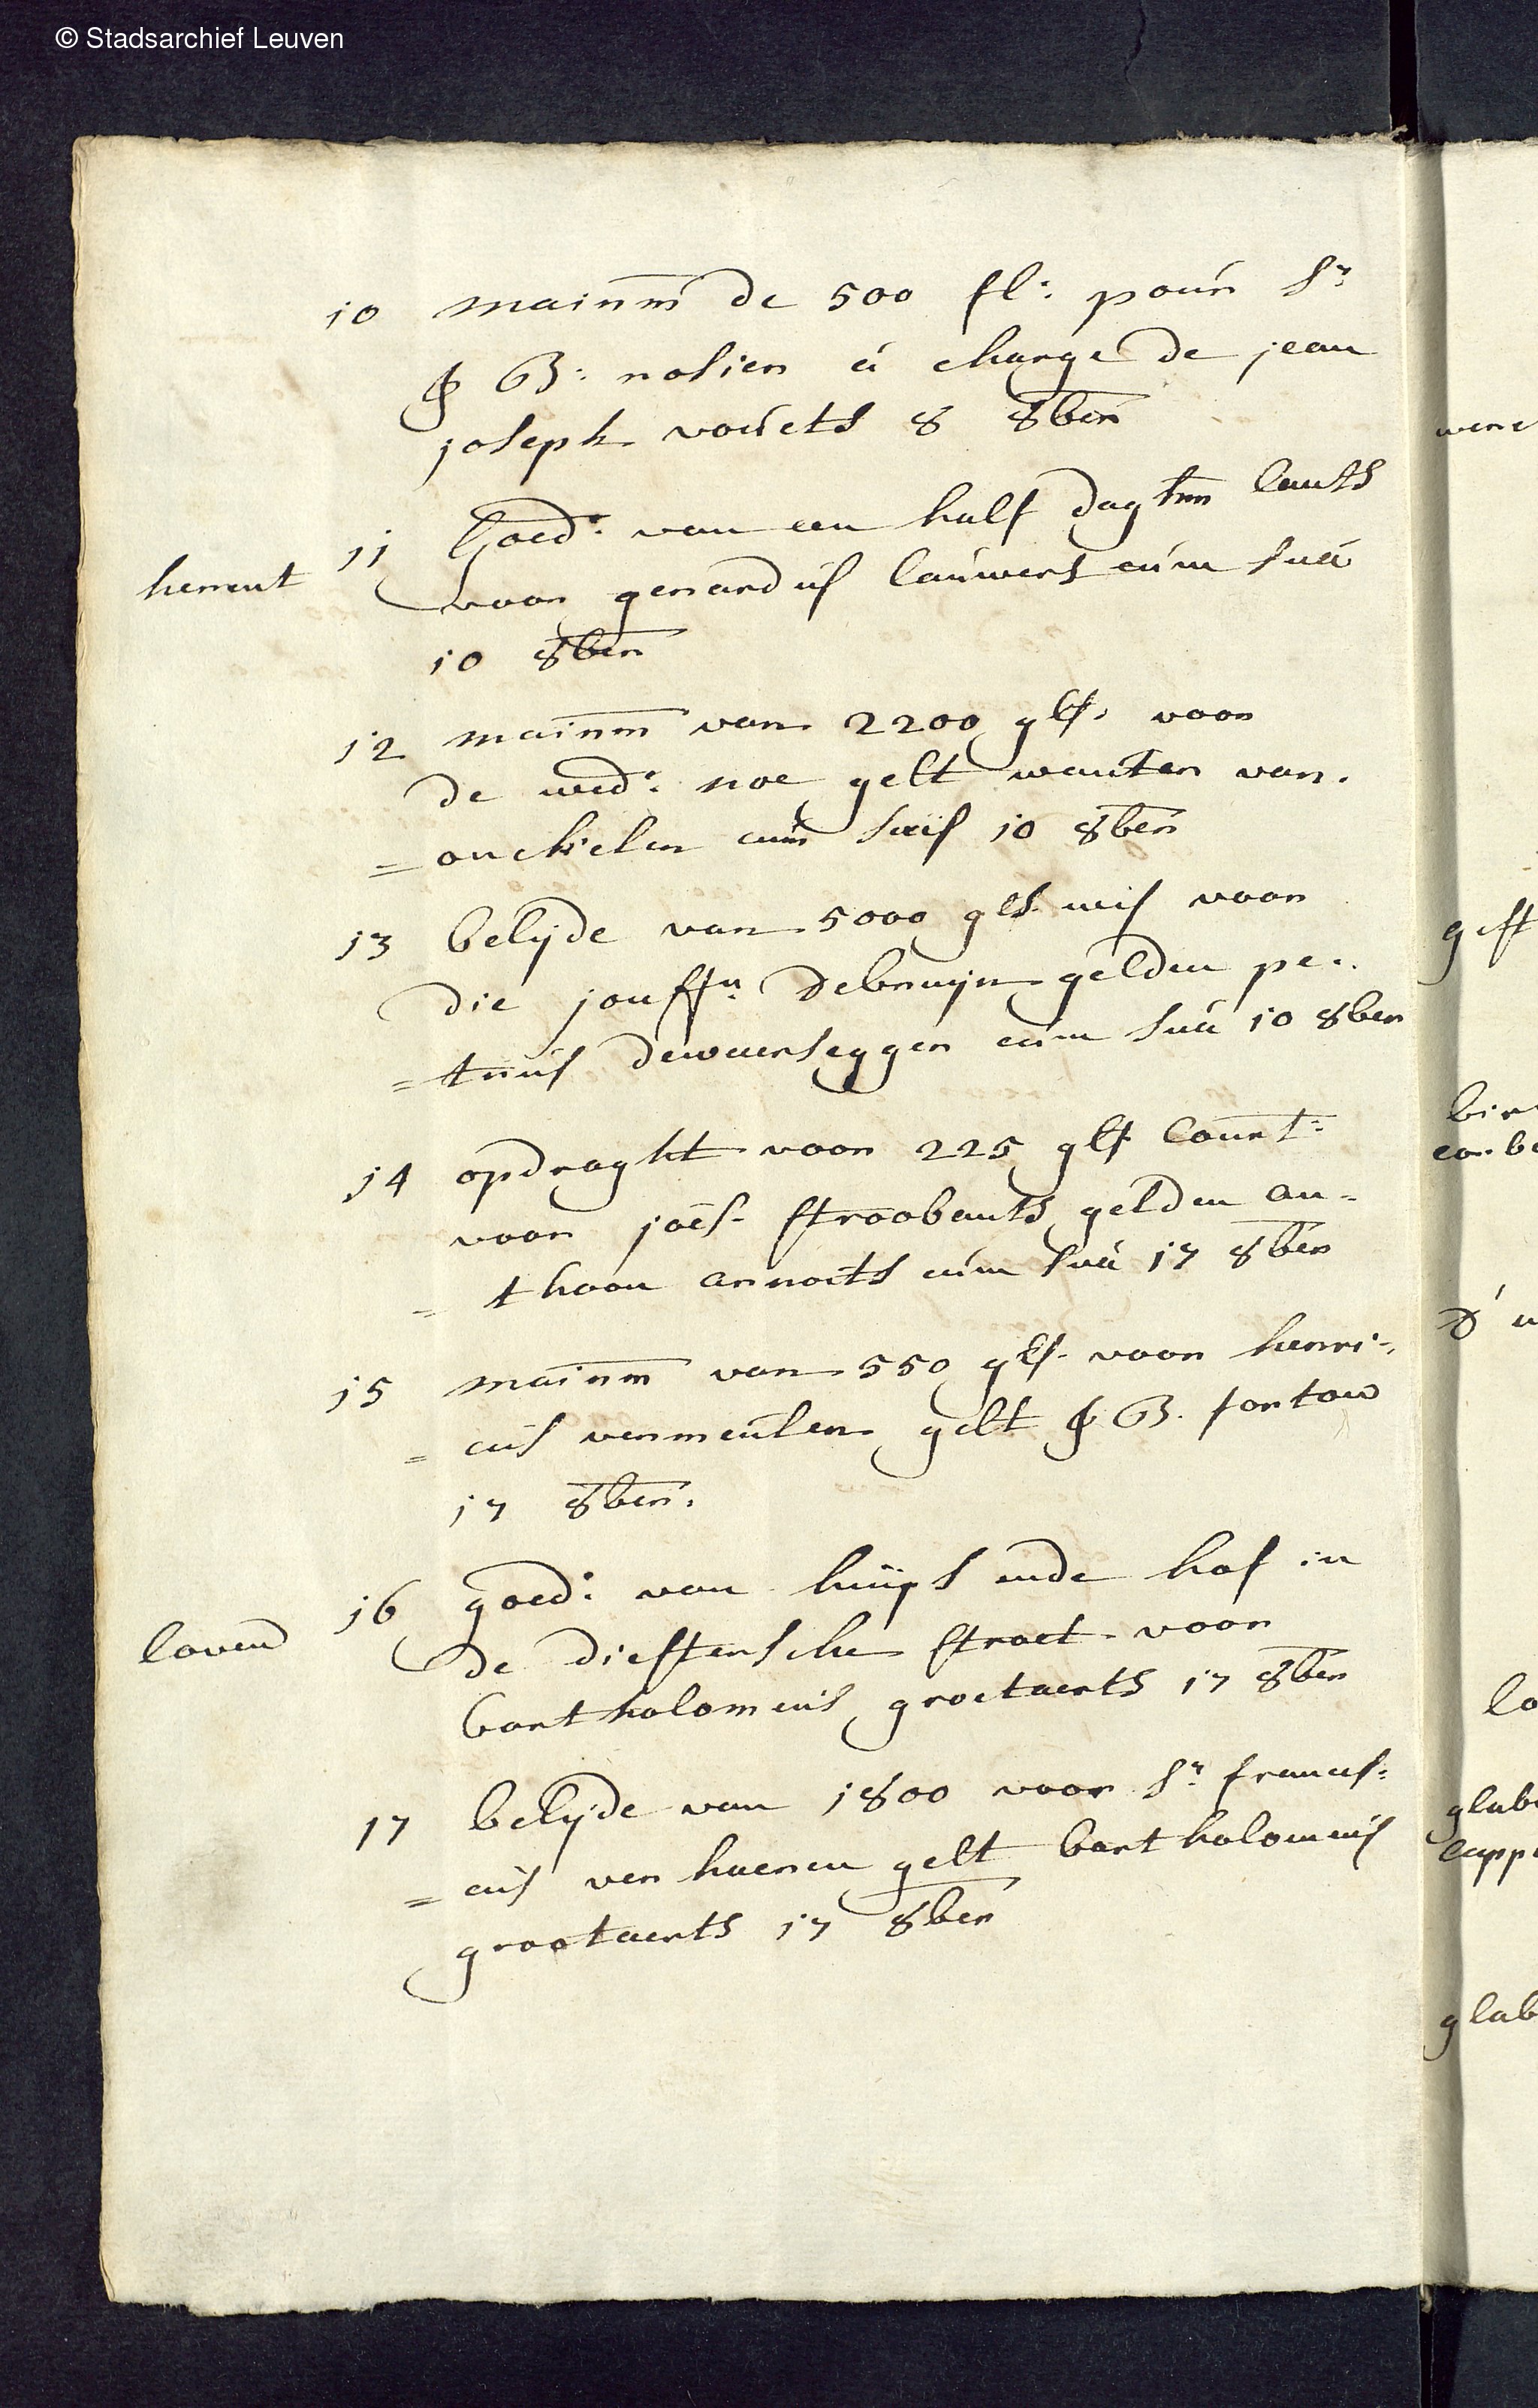 © Stadsarchief Leuven
10 mainm de 500 fl: pour Sr
J B: rosier á charge de jean
joseph vouets 8 8ber
herent
11 Goed: van een half dagtm lants
voor gerardus lauwers cum sua
10 8ber
12 mainm van 2200 gls voor
de wed: noe gelt wauter van.
=onckelen cum suis 10 8ber
13 belijde van 5000 gls wis voor
die jouffr Debruijn gelden pe..
=trus dewaersegger cum sua 10 8ber
14 opdraght voor 225 gls Court:
voor joes- stroobants gelden an=
=thoon arnoits cum sua 17 8ber
15 mainm van 550 gls- voor henri=
=cus vermeulen gelt J B. fortow
17 8ber.
loven
16 goed: van huijs ende hof in
de diestersche straet voor
bartholomeus groetaerts 17 8ber
17 belijde van 1800 voor Sr francis=
=cus ver haeren gelt bartholomeus
grootaerts 17 8ber
gift
D'
lo
glab
capp
glab